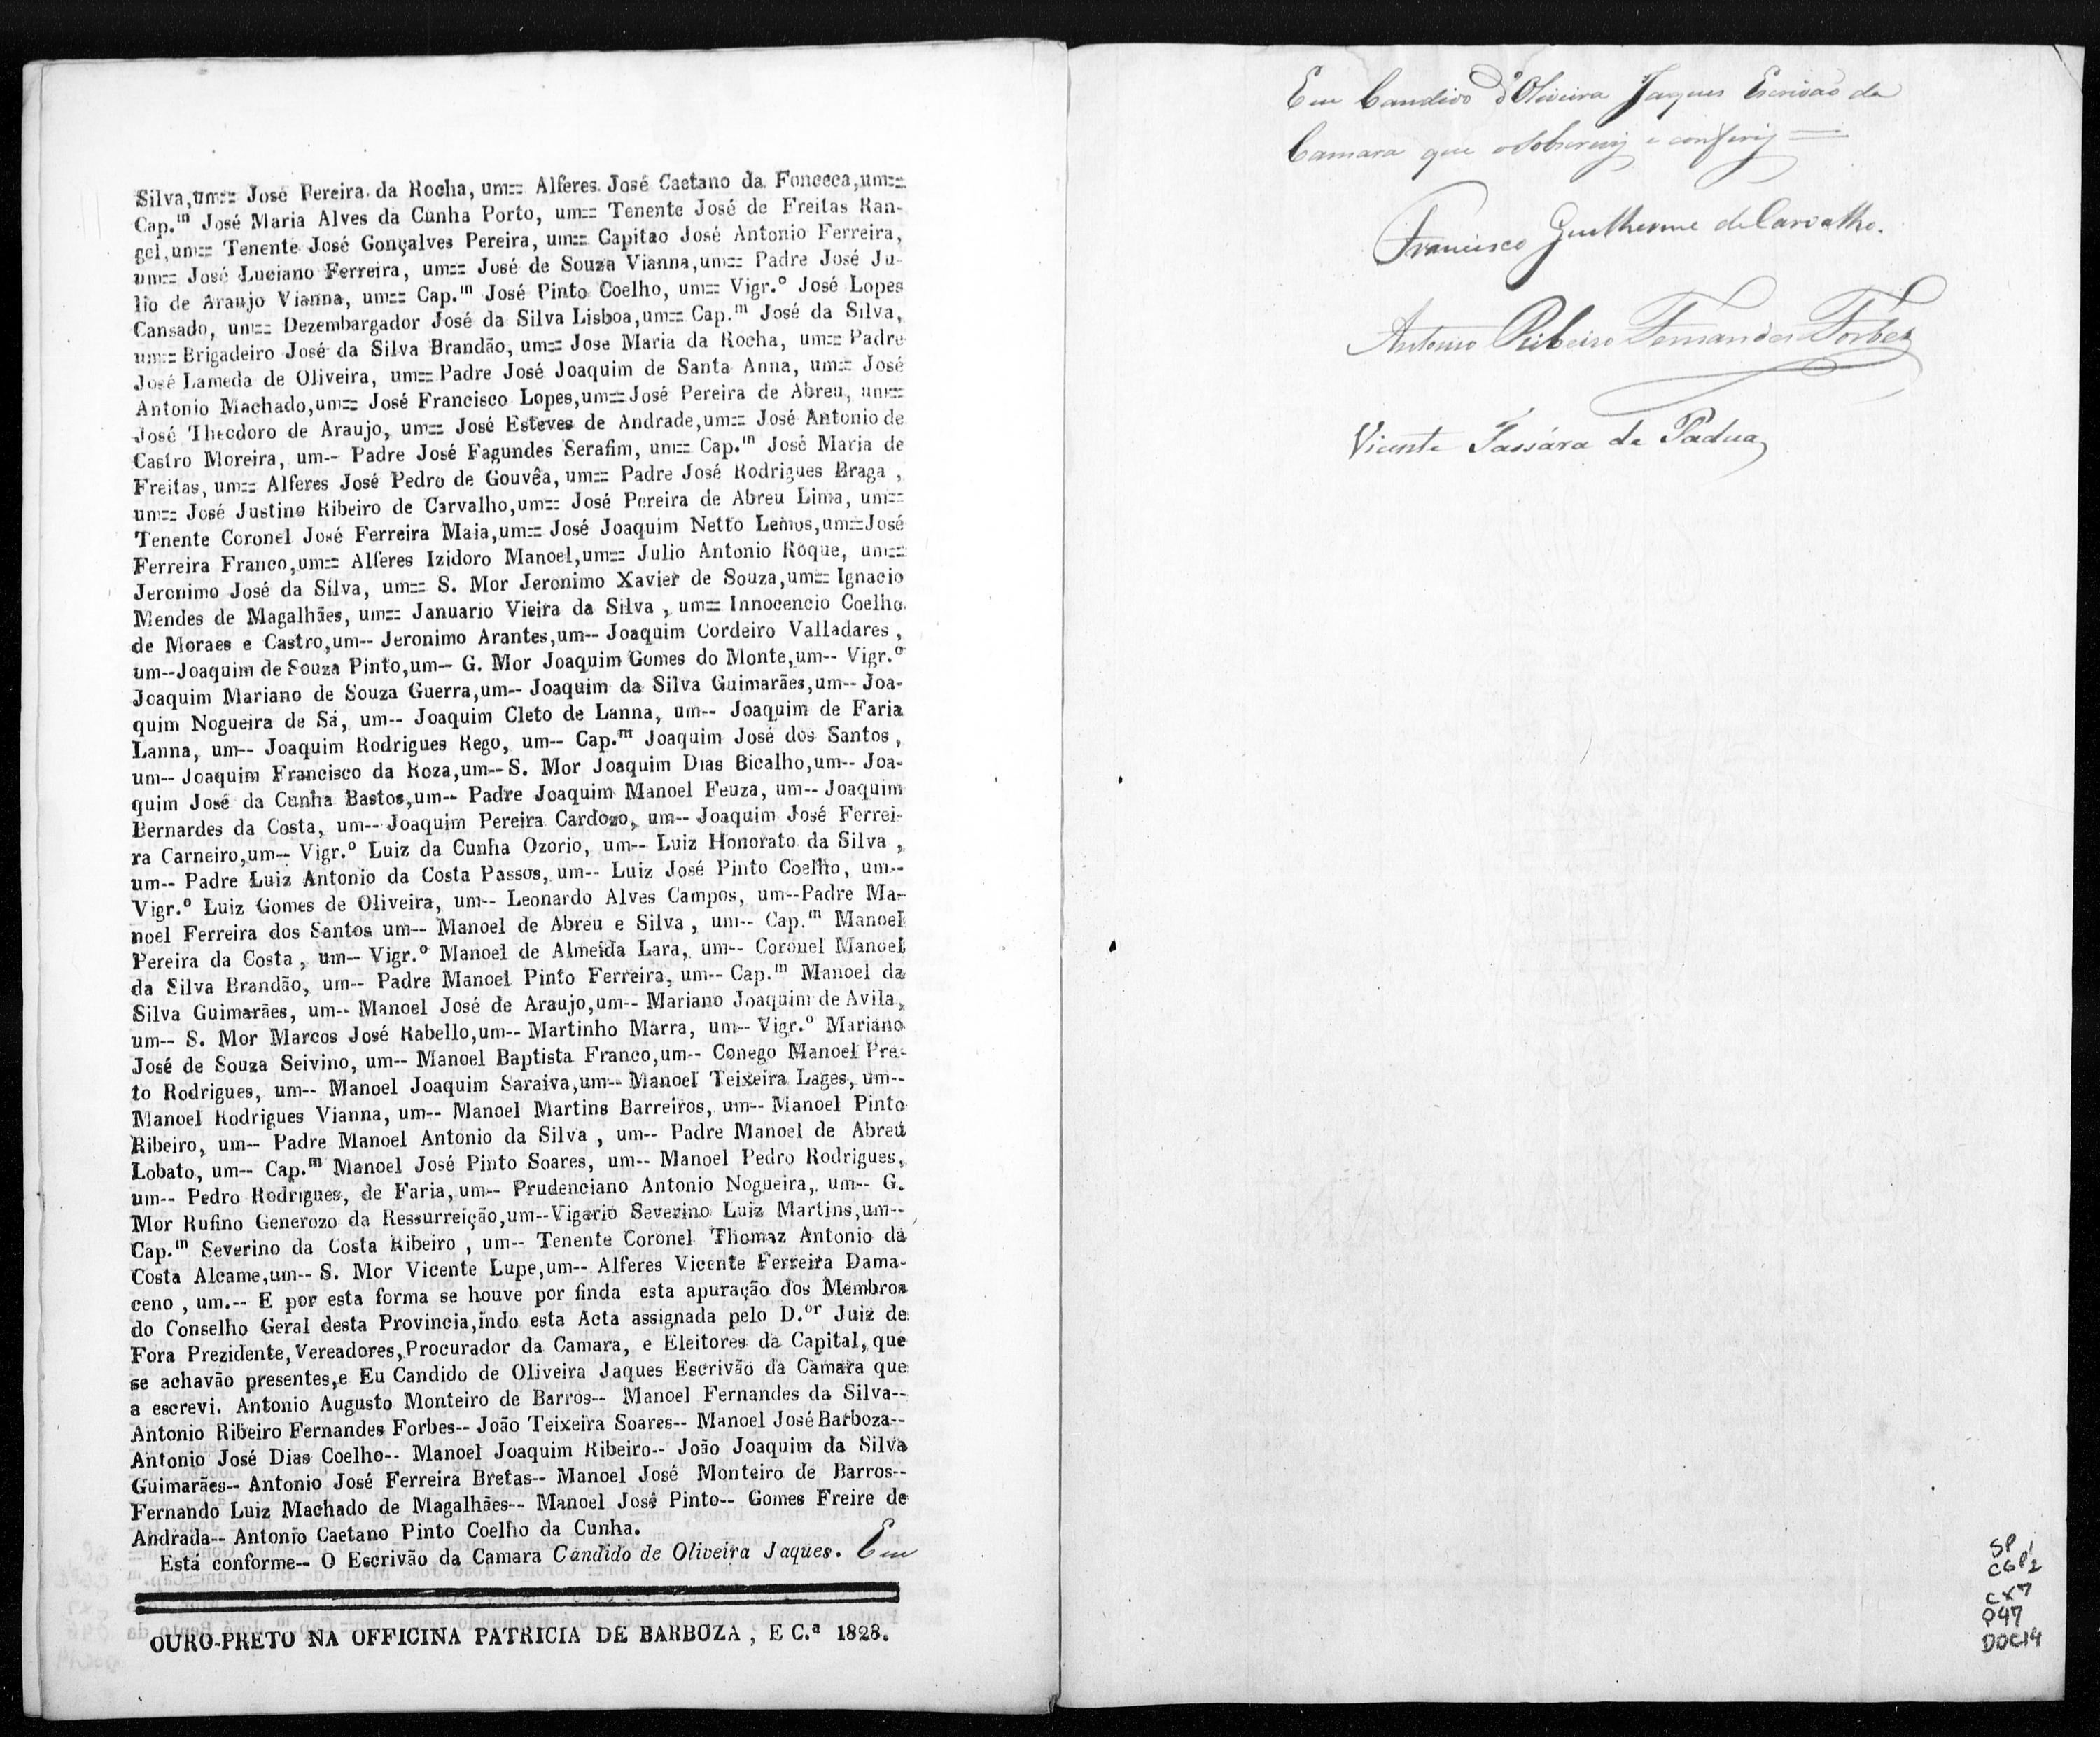 Silva,um== José Pereira da Rocha, um== Alferes José Caetano da Fonceca,um==
Cap.m José Maria Alves da Cunha Porto, um== Tenente José de Freitas Ran-
gel,um== Tenente José Gonçalves Pereira, um== Capitao José Antonio Ferreira,
um== José Luciano Ferreira, um== José de Souza Vianna,um== Padre José Ju-
lio de Araujo Vianna, um== Cap.m José Pinto Coelho, um== Vigr.º José Lopes
Cansado, um== Dezembargador José da Silva Lisboa,um== Cap.m José da Silva,
um== Brigadeiro José da Silva Brandão, um== Jose Maria da Rocha, um== Padre
José Lameda de Oliveira, um== Padre José Joaquim de Santa Anna, um== José
Antonio Machado,um== José Francisco Lopes,um== José Pereira de Abreu, um==
José Theodoro de Araujo, um== José Esteves de Andrade,um== José Antonio de
Castro Moreira, um-- Padre José Fagundes Serafim, um== Cap.m José Maria de
Freitas, um== Alferes José Pedro de Gouvêa, um== Padre José Rodrigues Braga ,
um== José Justino Ribeiro de Carvalho,um== José Pereira de Abreu Lima, um==
Tenente Coronel José Ferreira Maia,um== José Joaquim Netto Lemos,um==José
Ferreira Franco,um== Alferes Izidoro Manoel,um== Julio Antonio Roque, um==
Jeronimo José da Silva, um== S. Mor Jeronimo Xavier de Souza,um== Ignacio
Mendes de Magalhães, um== Januario Vieira da Silva , um== Innocencio Coelho
de Moraes e Castro,um-- Jeronimo Arantes,um-- Joaquim Cordeiro Valladares ,
um--Joaquim de Souza Pinto,um-- G. Mor Joaquim Gomes do Monte,um-- Vigr.º
Joaquim Mariano de Souza Guerra,um-- Joaquim da Silva Guimarães,um-- Joa-
quim Nogueira de Sá, um-- Joaquim Cleto de Lanna, um-- Joaquim de Faria
Lanna, um-- Joaquim Rodrigues Rego, um-- Cap.m Joaquim José dos Santos ,
um-- Joaquim Francisco da Roza,um-- S. Mor Joaquim Dias Bicalho,um-- Joa-
quim José da Cunha Bastos,um-- Padre Joaquim Manoel Feuza, um-- Joaquim
Bernardes da Costa, um-- Joaquim Pereira Cardozo, um-- Joaquim José Ferrei-
ra Carneiro,um-- Vigr.º Luiz da Cunha Ozorio, um-- Luiz Honorato da Silva ,
um-- Padre Luiz Antonio da Costa Passos, um-- Luiz José Pinto Coelho, um--
Vigr.º Luiz Gomes de Oliveira, um-- Leonardo Alves Campos, um--Padre Ma-
noel Ferreira dos Santos um-- Manoel de Abreu e Silva , um-- Cap.m Manoel
Pereira da Costa , um-- Vigr.º Manoel de Almeida Lara, um-- Coronel Manoel
da Silva Brandão, um-- Padre Manoel Pinto Ferreira, um-- Cap.m Manoel da
Silva Guimarães, um-- Manoel José de Araujo,um-- Mariano Joaquim de Avila,
um-- S. Mor Marcos José Rabello,um-- Martinho Marra, um-- Vigr.º Mariano
José de Souza Seivino, um-- Manoel Baptista Franco,um-- Conego Manoel Pre-
to Rodrigues, um-- Manoel Joaquim Saraiva,um-- Manoel Teixeira Lages, um--
Manoel Rodrigues Vianna, um-- Manoel Martins Barreiros, um-- Manoel Pinto
Ribeiro, um-- Padre Manoel Antonio da Silva , um-- Padre Manoel de Abreu
Lobato, um-- Cap.m Manoel José Pinto Soares, um-- Manoel Pedro Rodrigues,
um-- Pedro Rodrigues, de Faria, um-- Prudenciano Antonio Nogueira, um-- G.
Mor Rufino Generozo da Ressurreição,um--Vigario Severino Luiz Martins,um--
Cap.m Severino da Costa Ribeiro , um-- Tenente Coronel Thomaz Antonio da
Costa Alcame,um-- S. Mor Vicente Lupe,um-- Alferes Vicente Ferreira Dama-
ceno , um.-- E por esta forma se houve por finda esta apuração dos Membros
do Conselho Geral desta Provincia,indo esta Acta assignada pelo D.or Juiz de
Fora Prezidente,Vereadores,Procurador da Camara, e Eleitores da Capital, que
se achavão presentes,e Eu Candido de Oliveira Jaques Escrivão da Camara que
a escrevi. Antonio Augusto Monteiro de Barros-- Manoel Fernandes da Silva--
Antonio Ribeiro Fernandes Forbes-- João Teixeira Soares-- Manoel José Barboza--
Antonio José Dias Coelho-- Manoel Joaquim Ribeiro-- João Joaquim da Silva
Guimarães-- Antonio José Ferreira Bretas-- Manoel José Monteiro de Barros--
Fernando Luiz Machado de Magalhães-- Manoel José Pinto-- Gomes Freire de
Andrada-- Antonio Caetano Pinto Coelho da Cunha.
Está conforme-- O Escrivão da Camara Candido de Oliveira Jaques. Eu
OURO-PRETO NA OFFICINA PATRICIA DE BARBOZA , E C.ª 1828.
Eu Candido d'Oliveira Jaques Escrivaõ da
Camara que o Sobscrevy e conferij =
Francisco Guilherme de Carvalho.
Antonio Ribeiro Fernandes Forbes
Vicente Tassára de Padua
SP 1
CGP2
CX7
P47
DOC14